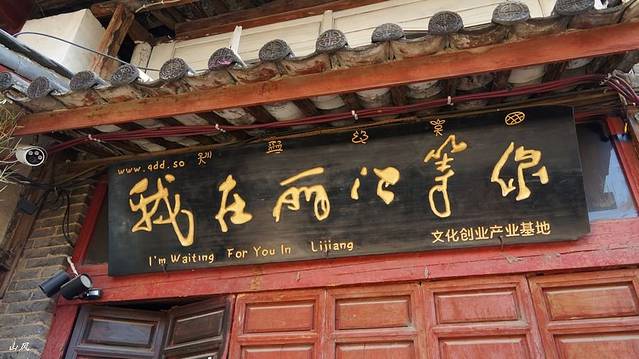 www.qdd.so
我在丽江等你
I'm Waiting For You In Lijiang
文化创业产业基地
山风